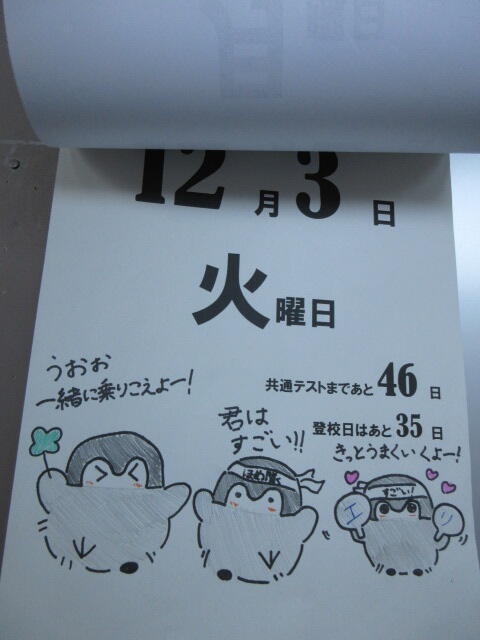 12月3日
火曜日
共通テストまであと46日
登校日はあと35日
うおお
一緒に乗りこえよー!
君は
すごい!!
きっとうまくいくよー!
すごい!
エ